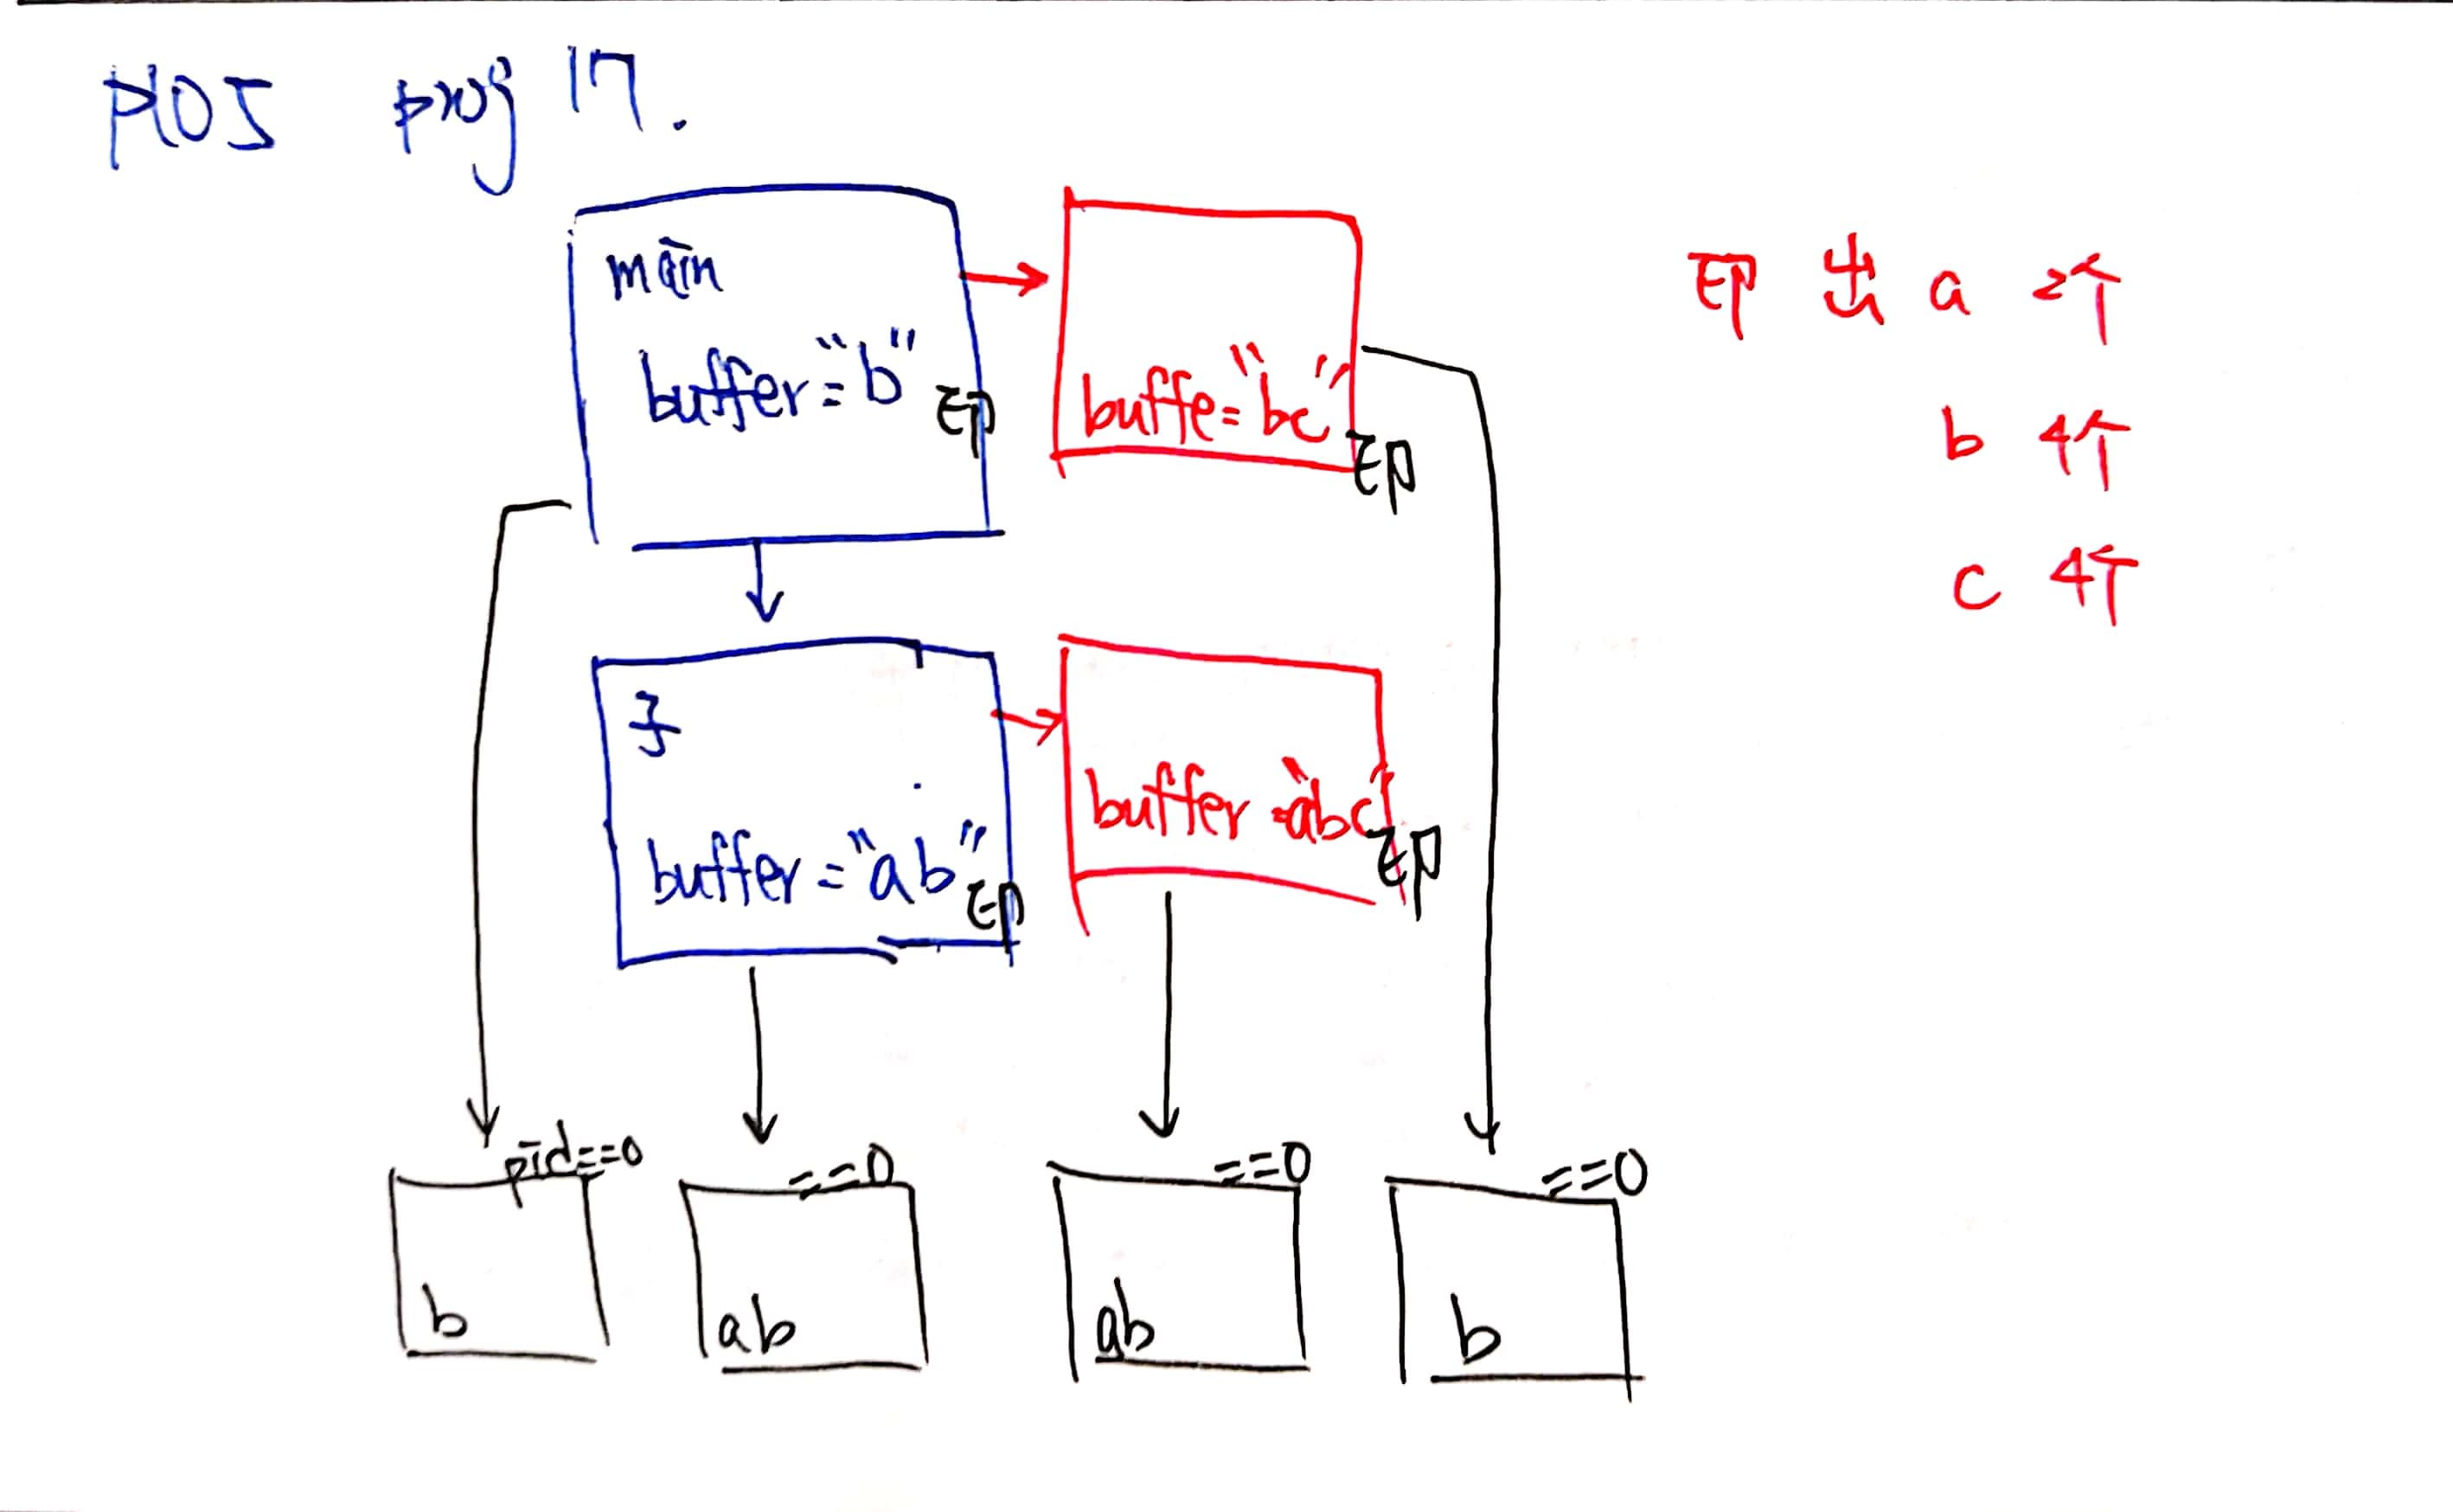 P105 prog 17.
main
buffer = "b"
印
buffe = "bc"
印
印出 a 2个
b 4个
c 4个
子
buffer = "ab"
印
buffer = "abc"
印
pid==0
==0
==0
==0
b
ab
ab
b